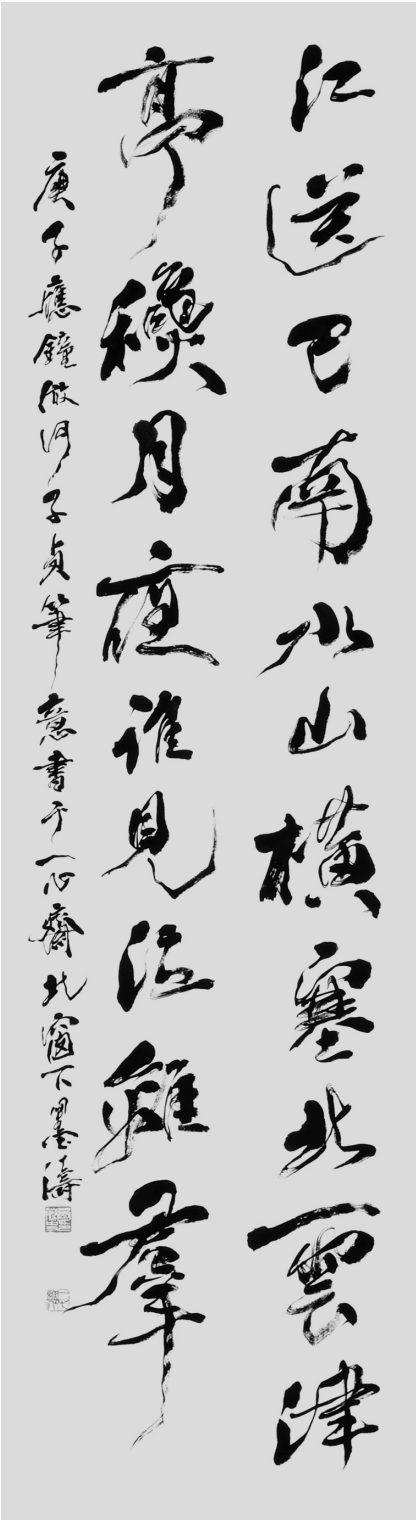 江送巴南水山橫塞北雲津
亭穐月夜誰見泣離羣
庚子應鐘倣何子貞筆意書于一心齋北窗下墨濤